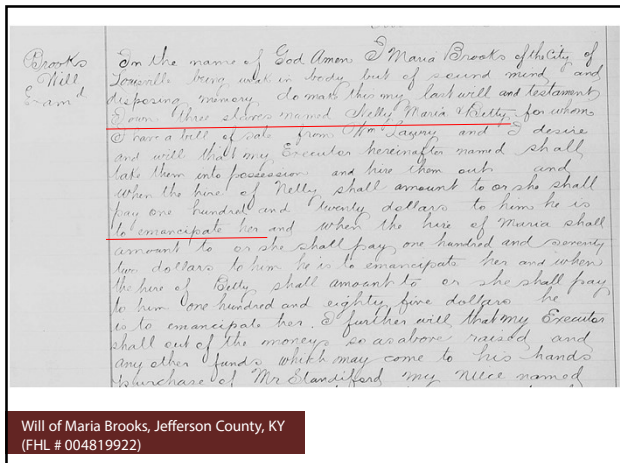 Brooks
Will
Exam^d
In the name of God Amen I Maria Brooks of the City of
Louisville being weak in body but of sound mind and
disposing memory do make this my last will and testament
I own three slaves named Nelly Maria & Betty, for whom
I have a bill of sale from Wm and I desire
and will that my Executor hereinafter named shall
take them into possession and hire them out and
when the hire of Nelly shall amount to or she shall
pay one hundred and twenty dollars to him he is
to emancipate her and when the hire of Maria shall
amount to or she shall pay one hundred and seventy
two dollars to him he is to emancipate her and when
the hire of Betty shall amount to or she shall pay
to him one hundred and eighty five dollars he
is to emancipate her. I further will that my Executor
shall out of the moneys so as above raised and
any other funds which may come to his hands
purchase of Mr Standiford my niece named
Will of Maria Brooks, Jefferson County, KY
(FHL # 004819922)